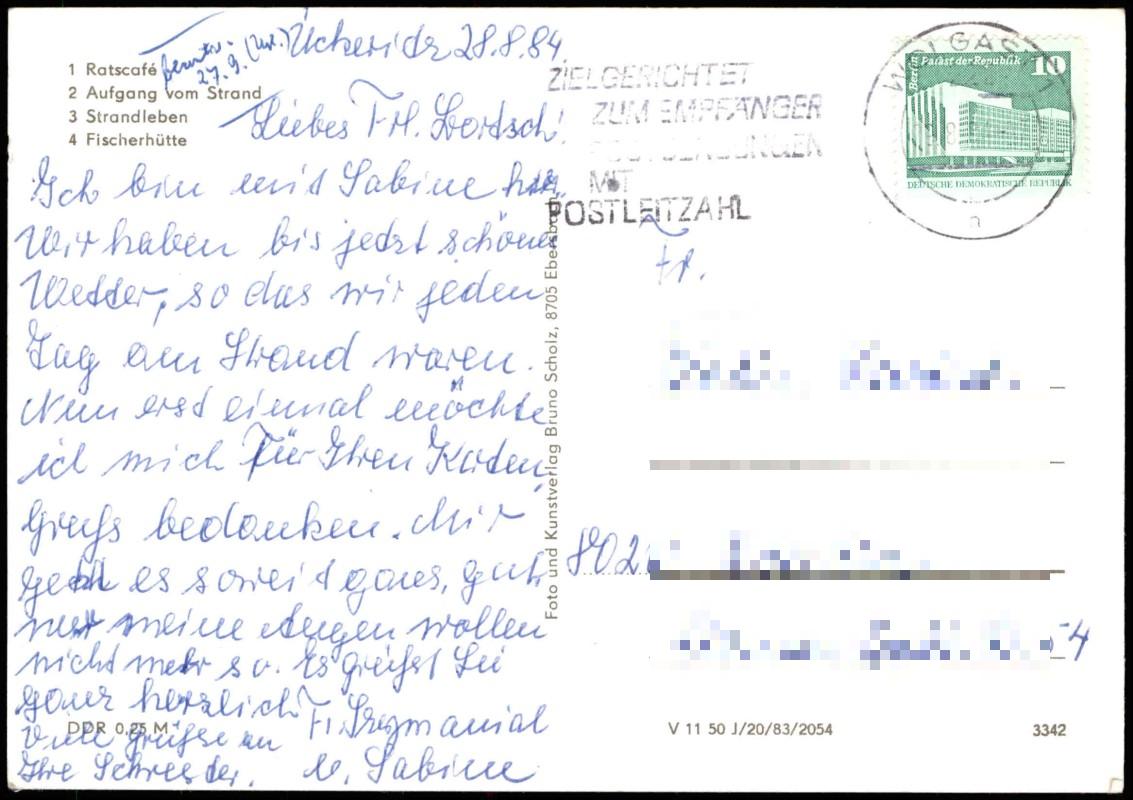 Ückeritz 28.8.84
27.9.
1 Ratscafé
2 Aufgang vom Strand
3 Strandleben
4 Fischerhütte
Liebes Frl.
Ich bin mit Sabine hier.
Wir haben bis jetzt schönes
Wetter, so das wir jeden
Tag am Strand waren.
Nun erst einmal möchte
ich mich für Ihren Karten
gruß bedanken. Mir
geht es soweit ganz gut,
nur meine Augen wollen
nicht mehr so. Es grüßt Sie
ganz herzlich Fr.
Viele Grüße an
Ihre Schwester. u. Sabine
DDR 0,25 M
Foto und Kunstverlag Bruno Scholz, 8705 Ebersbach
ZIELGERICHTET
ZUM EMPFÄNGER
POSTSENDUNGEN
MIT
POSTLEITZAHL
WOLGAST 1
a
Berlin Palast der Republik 10
DEUTSCHE DEMOKRATISCHE REPUBLIK
Fr.
802
54
V 11 50 J/20/83/2054
3342